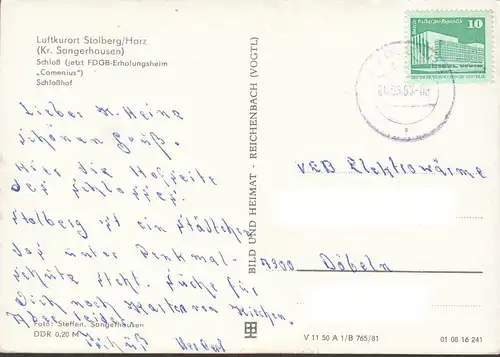 Luftkurort Stolberg/Harz
(Kr. Sangerhausen)
Schloß (jetzt FDGB-Erholungsheim
„Comenius“)
Schloßhof
Lieber M. Heinz
schönen Gruß.
Hier die Hofseite
des Schlosses.
Stolberg ist ein Städtchen
das unter Denkmal-
schutz steht. Suche für
Dich noch Karten von Kirchen.
Aber leider
Foto: Steffen, Sangerhausen
DDR 0,20 M
Tschüß Herbert
BILD UND HEIMAT · REICHENBACH (VOGTL)
Palast der Republik
10
VEB Elektrowärme
7300 Döbeln
V 11 50 A 1/B 765/81
01 08 16 241